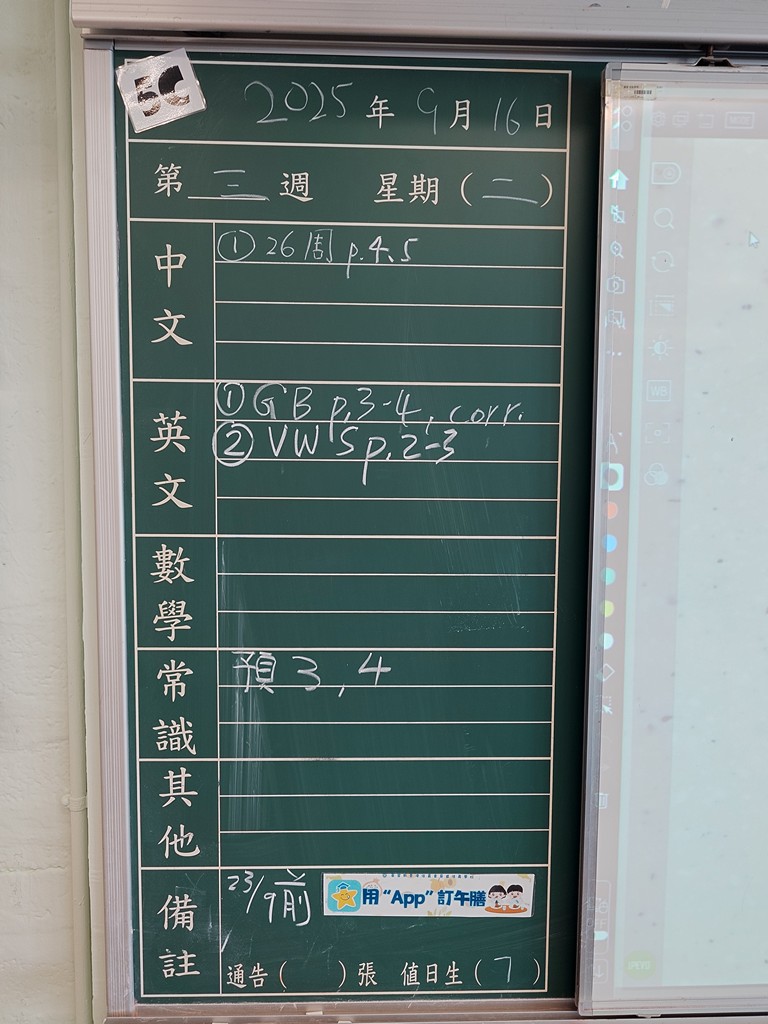 5C
2025年9月16日
第三週 星期(二)
中文
① 26周 p.4、5
英文
① GB p.3-4, corr.
② VWS p.2-3
數學
常識
預 3,4
其他
備註
23/9前
用“App”訂午膳
通告( )張 值日生(7)